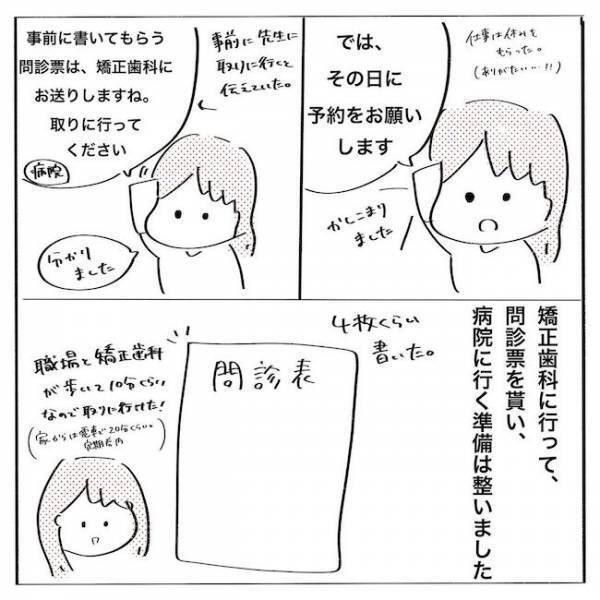 では、
その日に
予約をお願い
します
仕事は休みを
もらった。
(ありがたい…!!)
かしこまり
ました
事前に書いてもらう
問診票は、矯正歯科に
お送りしますね。
取りに行って
ください
病院
事前に先生に
取りに行くと
伝えていた。
分かり
ました
矯正歯科に行って、
問診票を貰い、
病院に行く準備は整いました
4枚くらい
書いた。
問診表
職場と矯正歯科
が歩いて10分くらい
なので取りに行けた!
(家からは電車で20分くらい。
定期券内)